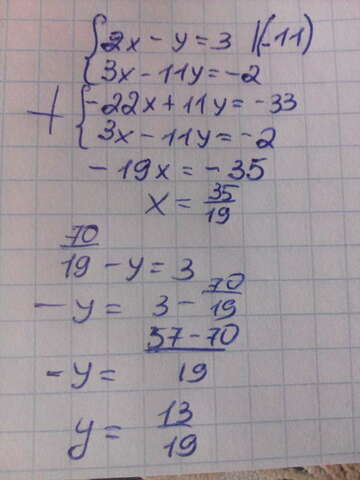 {2x - y = 3 |(-11)
{3x - 11y = -2
+ {-22x + 11y = -33
{3x - 11y = -2
-19x = -35
x = 35/19
70/19 - y = 3
-y = 3 - 70/19
-y = 57-70/19
y = 13/19